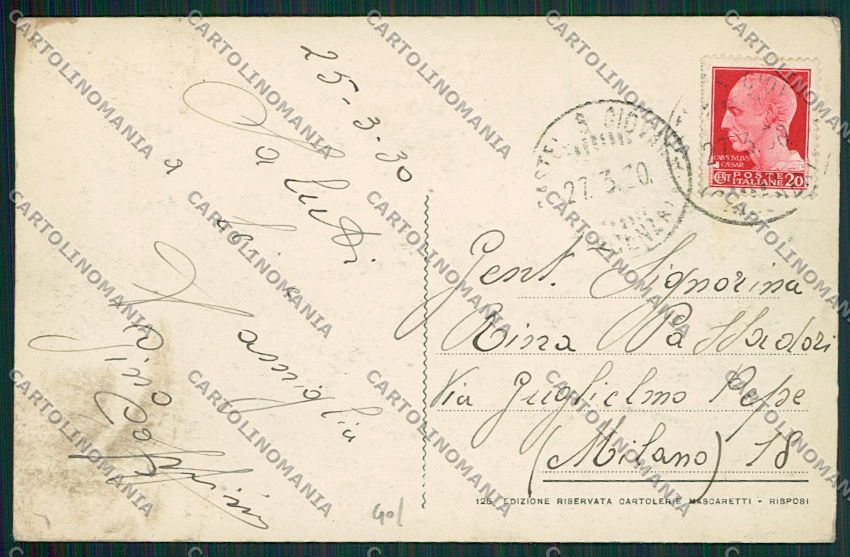 25-3-30
Saluti
a Lei e
Famiglia
CASTEL S. GIOVA
27.3.30.
CAIVS IVLIVS
CAESAR
CENT POSTE ITALIANE 20
Gent. Signorina
Rina
Via Guglielmo Pepe
(Milano) 18
125 EDIZIONE RISERVATA CARTOLERIE MASCARETTI - RISPOSI
401
CARTOLINOMANIA